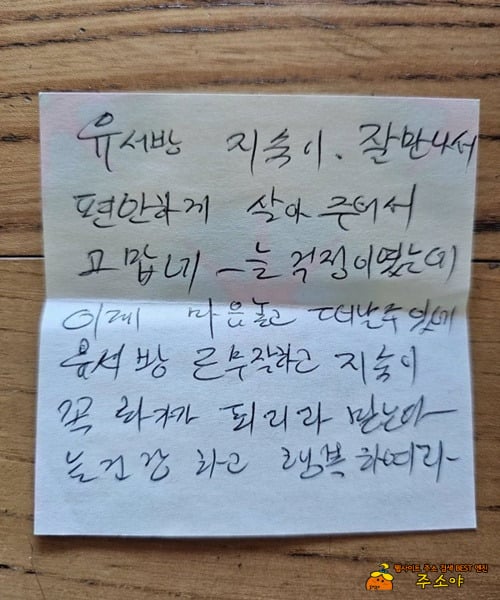 유서방 지숙이. 잘 만나서
편안하게 살아 주어서
고맙네 늘 걱정이였는데
이제 마음놓고 떠날수있네
유서방 근무잘하고 지숙이
꼭 화가가 되리라 믿는다
늘 건강 하고 행복하여라
웹사이트 주소 검색 BEST 엔진
주소야